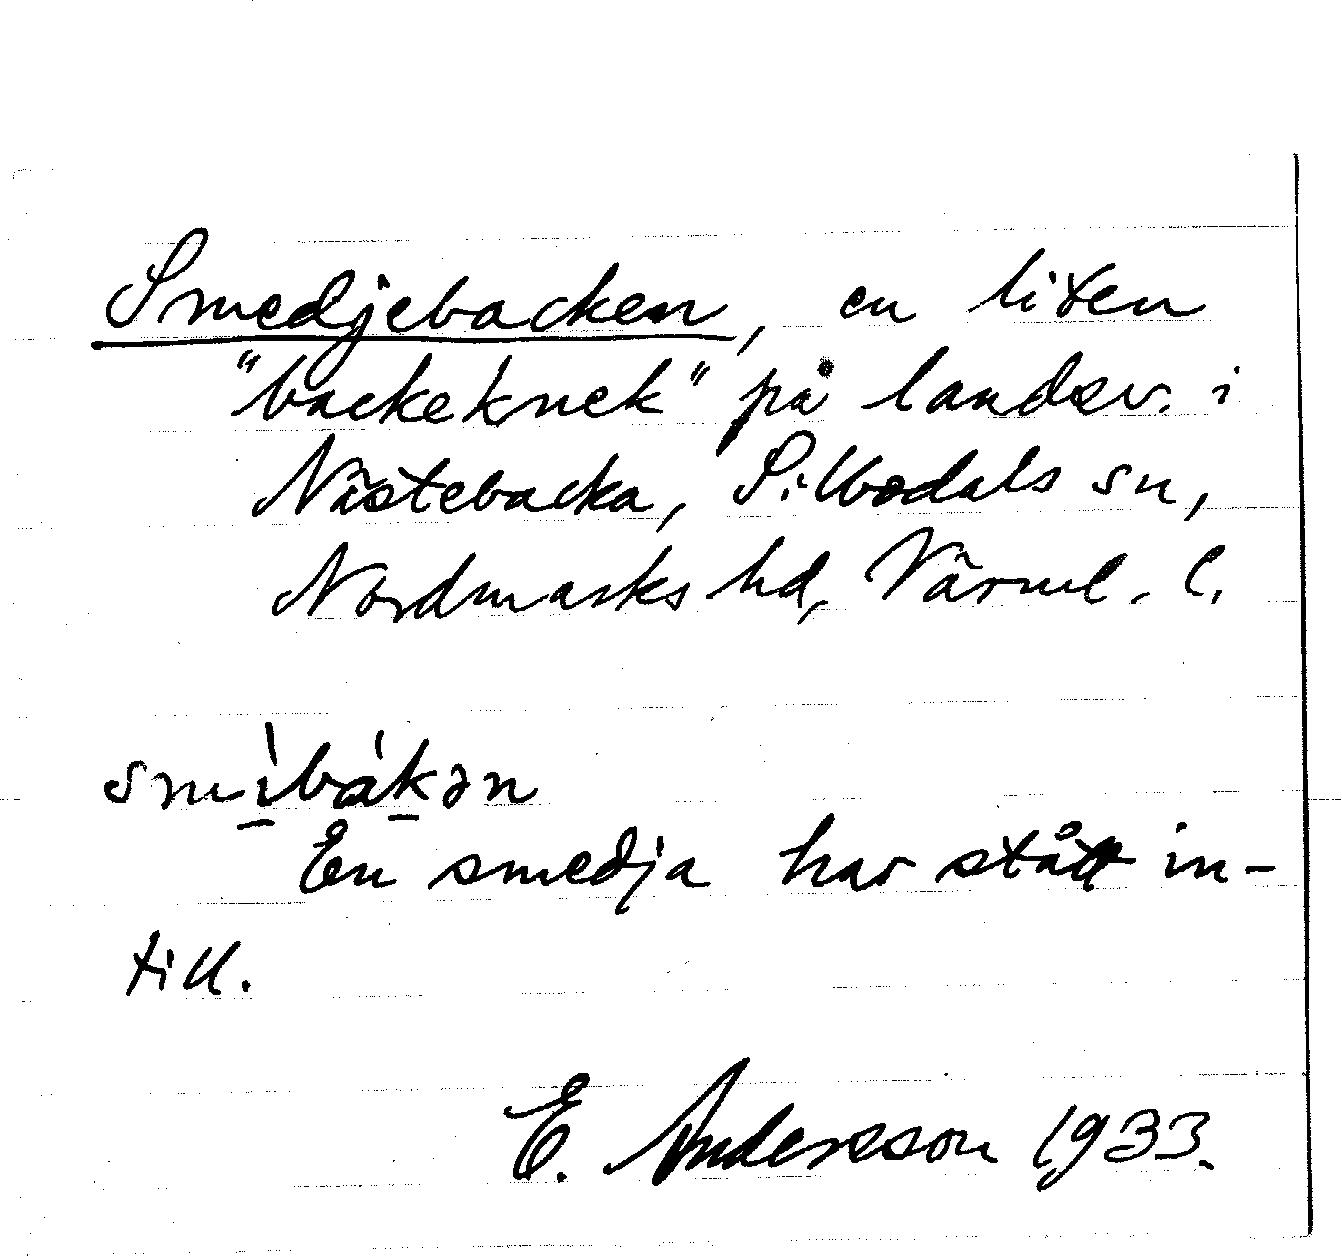 Smedjebacken, en liten
"backeknek" på landsv. i
Nästebacka, Sillbodals sn,
Nordmarks hd, Värml. l.
smìbákən
En smedja har stått in-
till.
E. Andersson 1933.